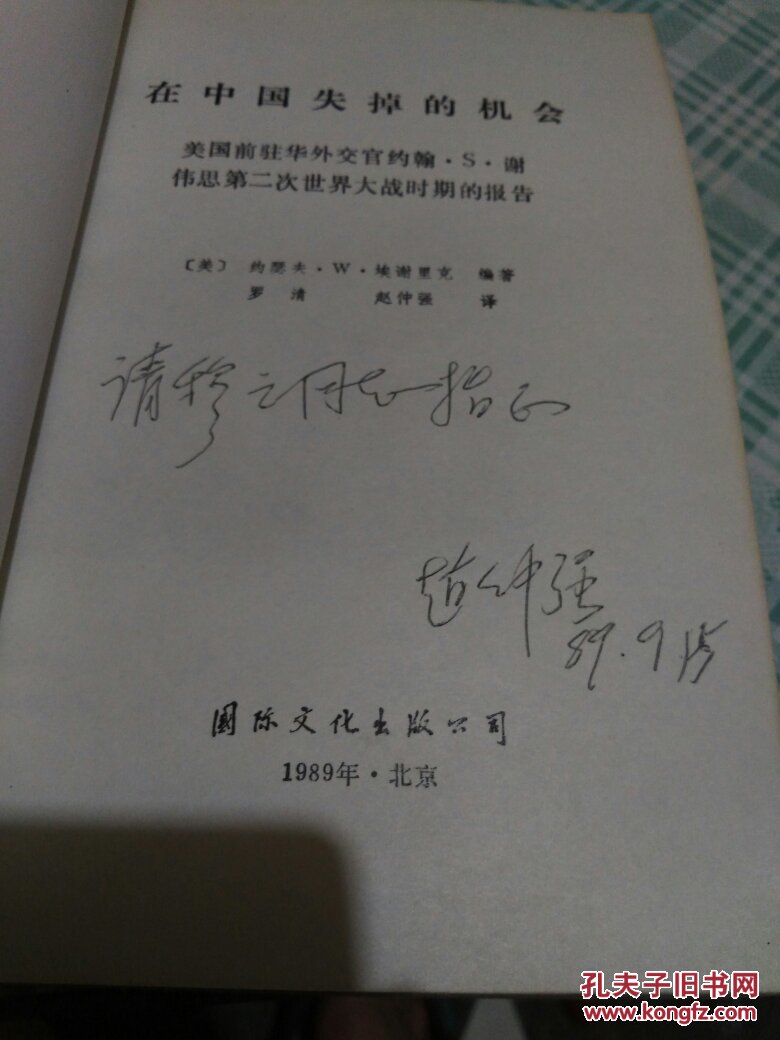 在中国失掉的机会
美国前驻华外交官约翰·S·谢
伟思第二次世界大战时期的报告
〔美〕 约瑟夫·W·埃谢里克 编著
罗清 赵仲强 译
请穆之同志指正
赵仲强
89.9
国际文化出版公司
1989年·北京
孔夫子旧书网
www.kongfz.com